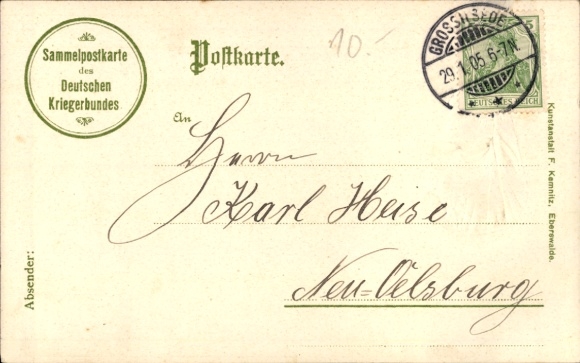 Sammelpostkarte
des
Deutschen
Kriegerbundes
Postkarte.
10.-
GROSS ILSEDE
29.1.05 6-7N.
5
DEUTSCHES REICH
An
Herrn
Karl Heise
Neu-Oelsburg
Absender:
Kunstanstalt F. Kemnitz, Eberswalde.